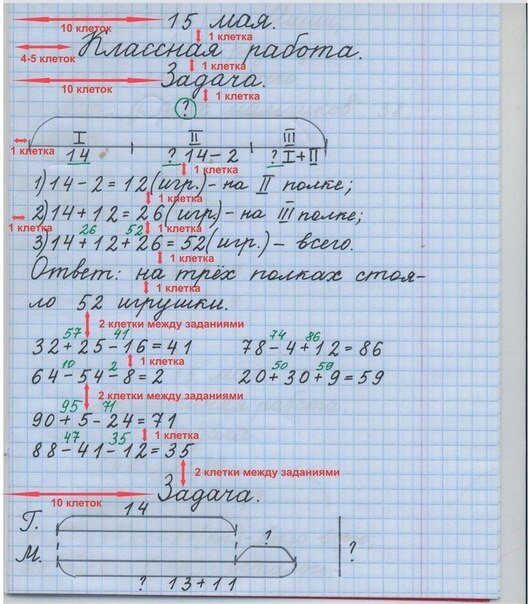 10 клеток 15 мая.
1 клетка
4-5 клеток Классная работа.
1 клетка
10 клеток Задача.
1 клетка
?
I II III
1 клетка 14 ? 14-2 ? I+II
1 клетка
1) 14-2=12(игр.)- на II полке;
1 клетка
2) 14+12=26(игр.)- на III полке;
1 клетка 26 52 1 клетка
3) 14+12+26=52(игр.)- всего.
1 клетка
Ответ: на трёх полках стоя-
1 клетка
ло 52 игрушки.
2 клетки между заданиями
57 41 74 86
32+25-16=41 78-4+12=86
10 2 1 клетка 50 59
64-54-8=2 20+30+9=59
2 клетки между заданиями
95 71
90+5-24=71
47 35 1 клетка
88-41-12=35
2 клетки между заданиями
10 клеток Задача.
14
Г.
? ?
М.
? 13+11